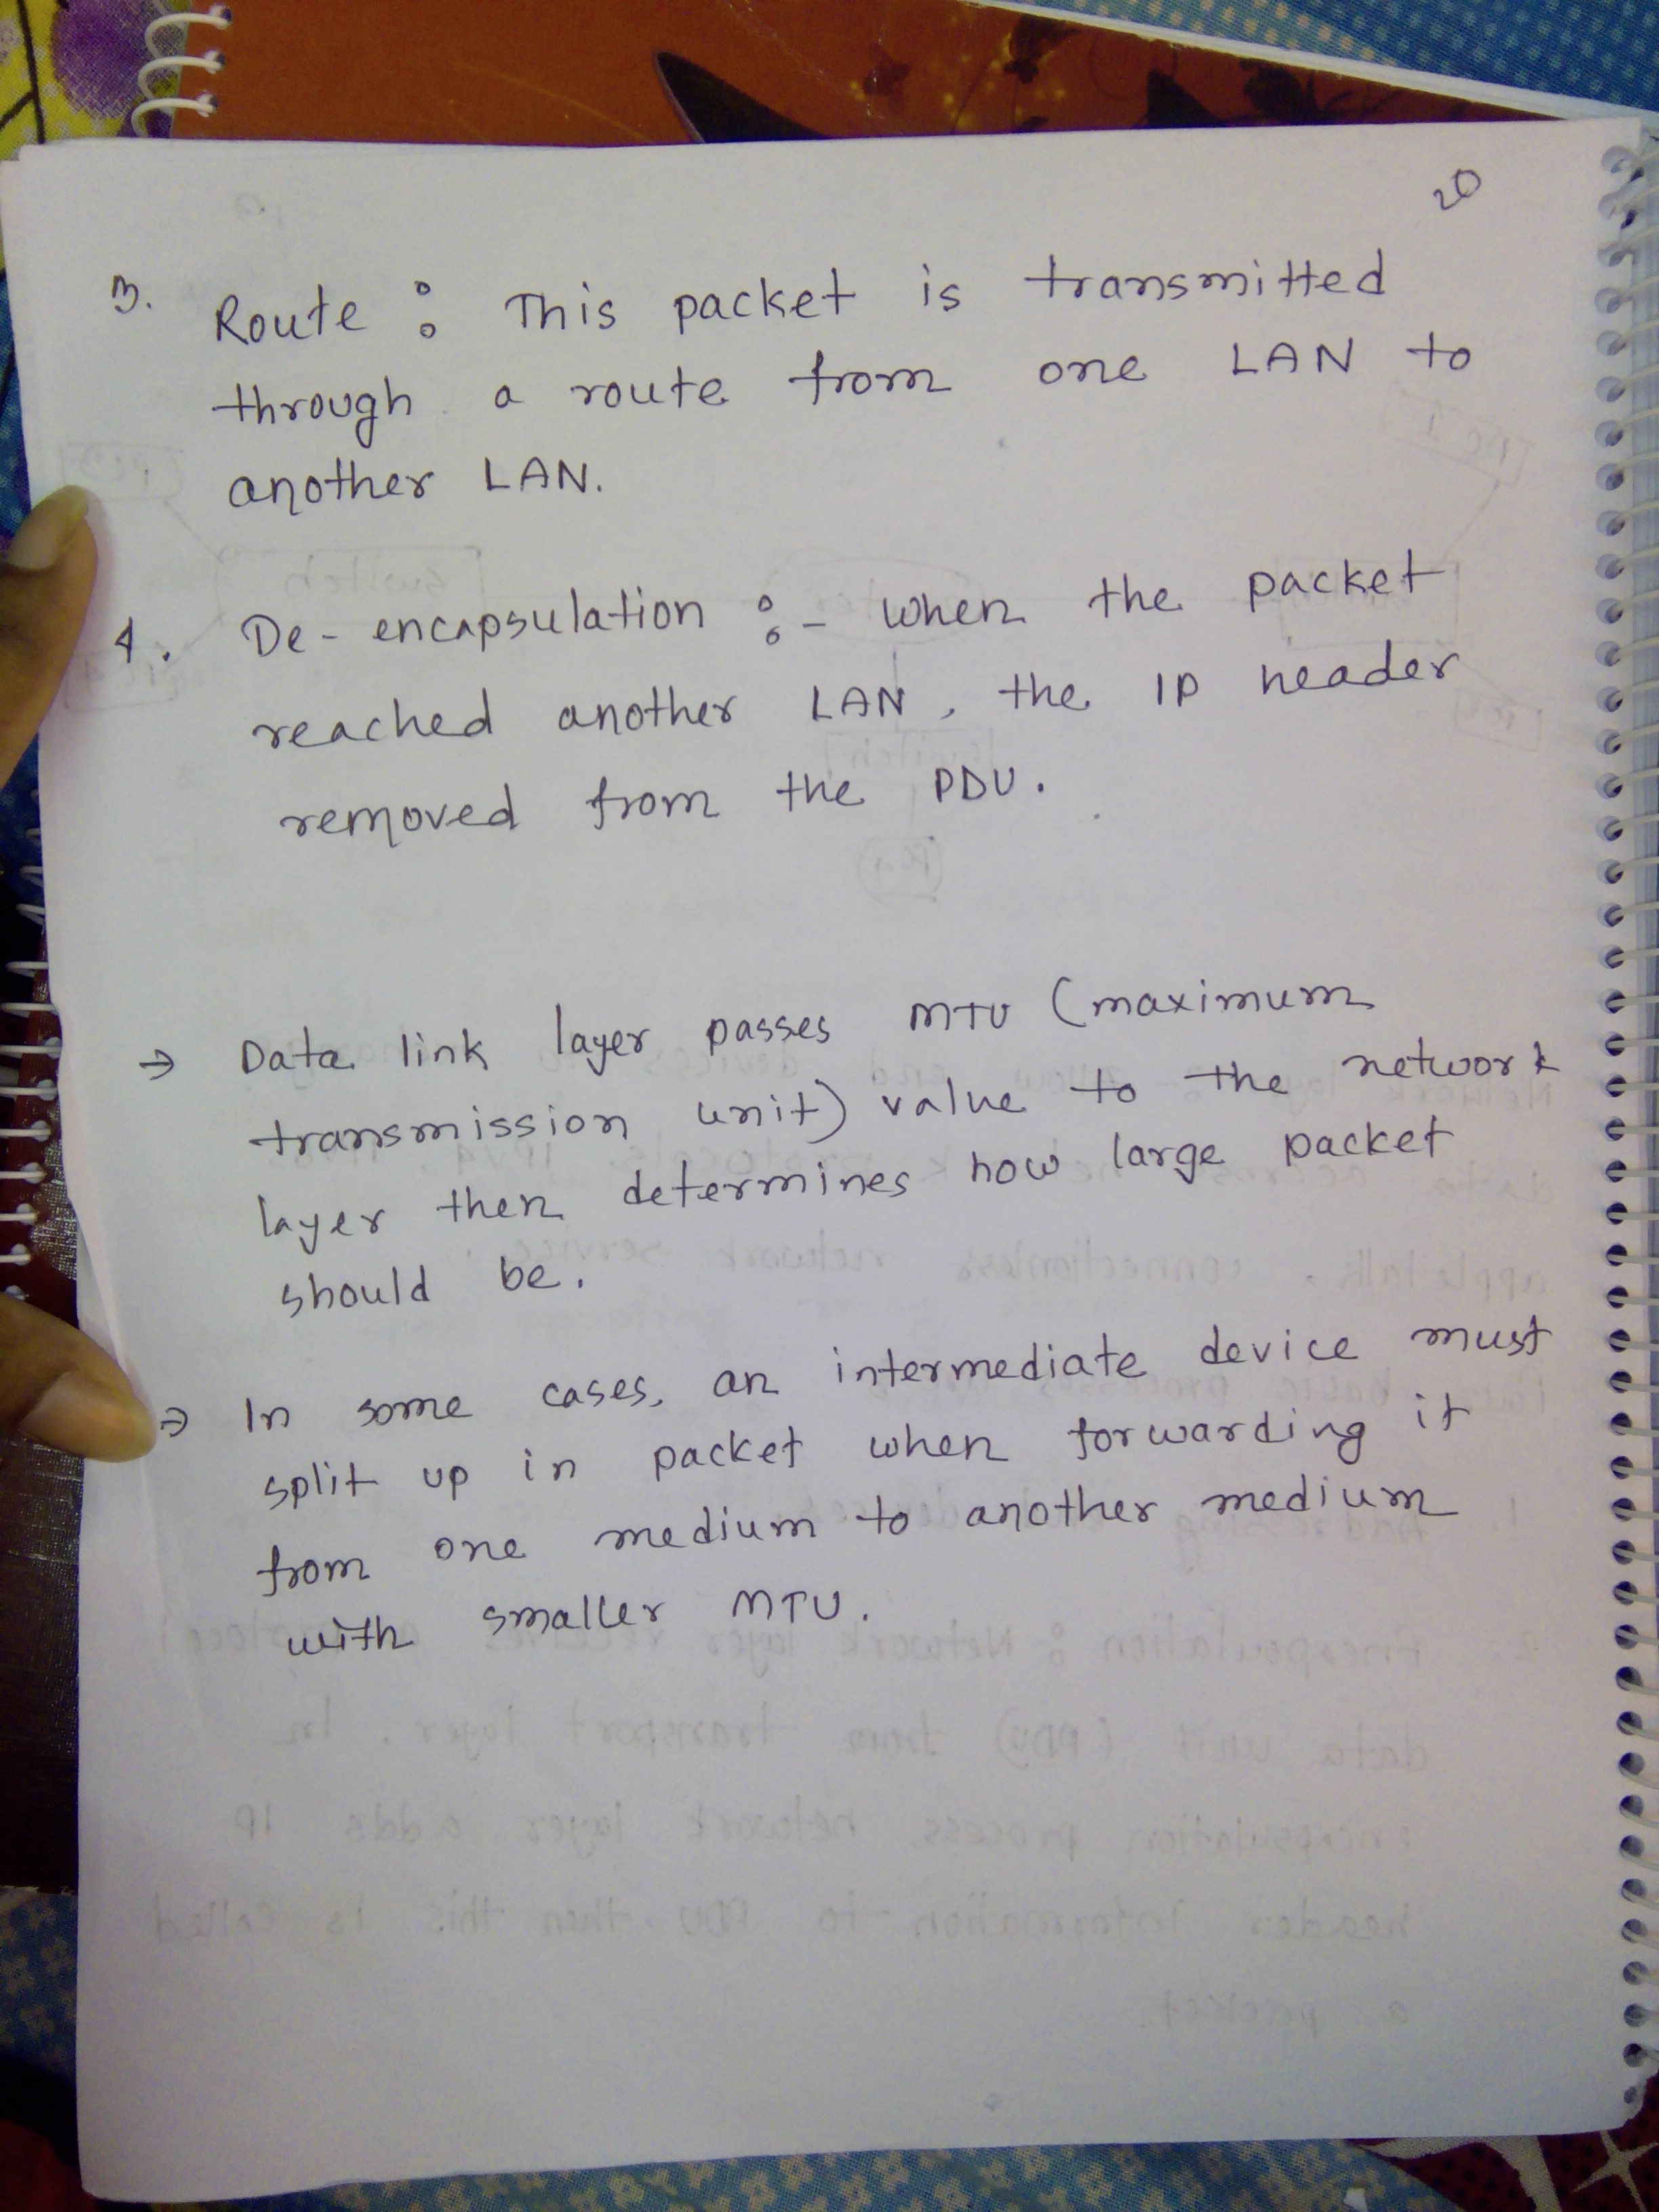 20
3. Route : This packet is transmitted
through a route from one LAN to
another LAN.
4. De-encapsulation :- when the packet
reached another LAN, the IP header
removed from the PDU.
→ Data link layer passes MTU (maximum
transmission unit) value to the network
layer then determines how large packet
should be.
→ In some cases, an intermediate device must
split up in packet when forwarding it
from one medium to another medium
with smaller MTU.